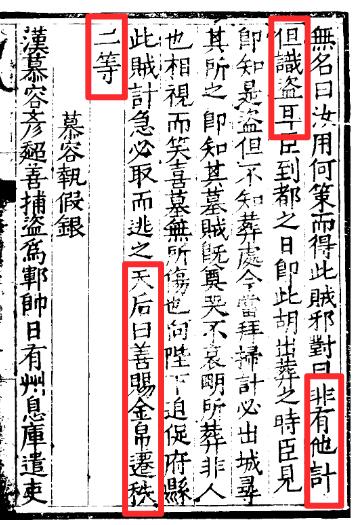 無名曰汝用何策而得此賊邪對曰非有他計
但識盜耳臣到都之日即此胡出葬之時臣見
即知是盜但不知葬處今當拜掃計必出城尋
其所之即知其墓賊既奠哭不哀明所葬非人
也相視而笑喜墓無所傷也向陛下迫促府縣
此賊計急必取而逃之天后曰善賜金帛遷秩
二等
慕容執假銀
漢慕容彥超善捕盜為鄆帥日有州息庫遣吏